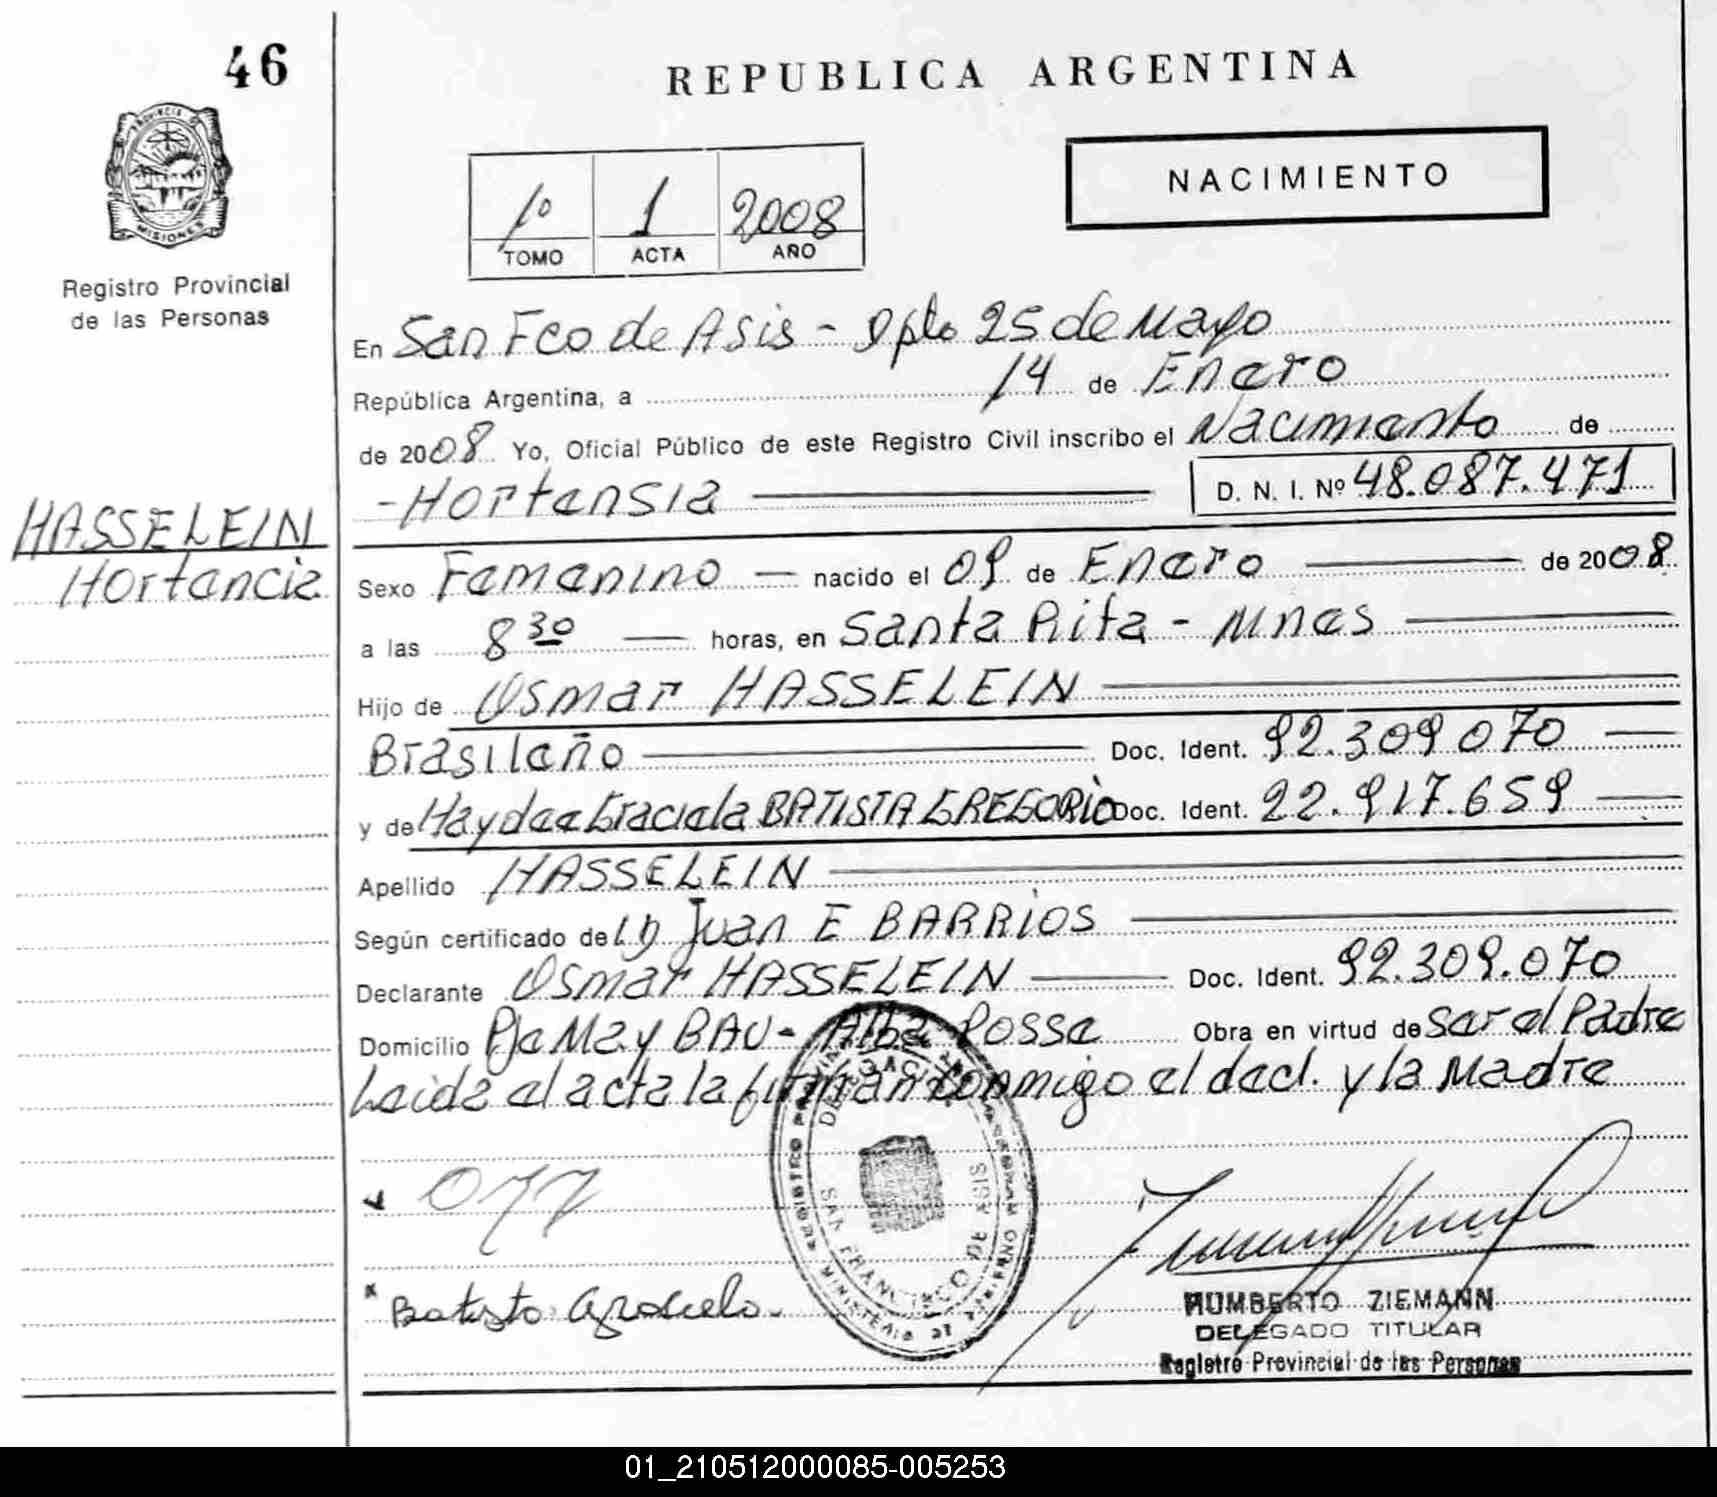 46
REPUBLICA ARGENTINA
PROVINCIA DE
MISIONES
Registro Provincial
de las Personas
1º 1 2008
TOMO ACTA AÑO
NACIMIENTO
En San Fco de Asis - Dpto 25 de Mayo
República Argentina, a 14 de Enero
de 2008 Yo, Oficial Público de este Registro Civil inscribo el Nacimiento de
- Hortensia D. N. I. Nº 48.087.471
HASSELEIN
Hortencia
Sexo Femenino nacido el 09 de Enero de 2008
a las 8 30 horas, en Santa Rita - Mnes
Hijo de Osmar HASSELEIN
Brasileño Doc. Ident. 92.309 070
y de Haydee Graciela BATISTA GREGORIO Doc. Ident. 22.917.659
Apellido HASSELEIN
Según certificado de Juan E BARRIOS
Declarante Osmar HASSELEIN Doc. Ident. 92.309.070
Domicilio Pje May BAU - Alba Posse Obra en virtud de Ser el Padre
Leida el acta la firman conmigo el decl. y la Madre
Batista Graciela
DELEGACION
SAN FRANCISCO DE ASIS
HUMBERTO ZIEMANN
DELEGADO TITULAR
Registro Provincial de las Personas
01_210512000085-005253